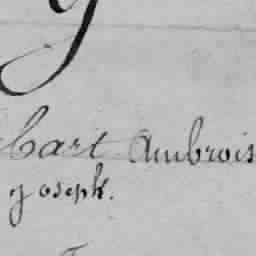 bart Ambrois
Joseph.